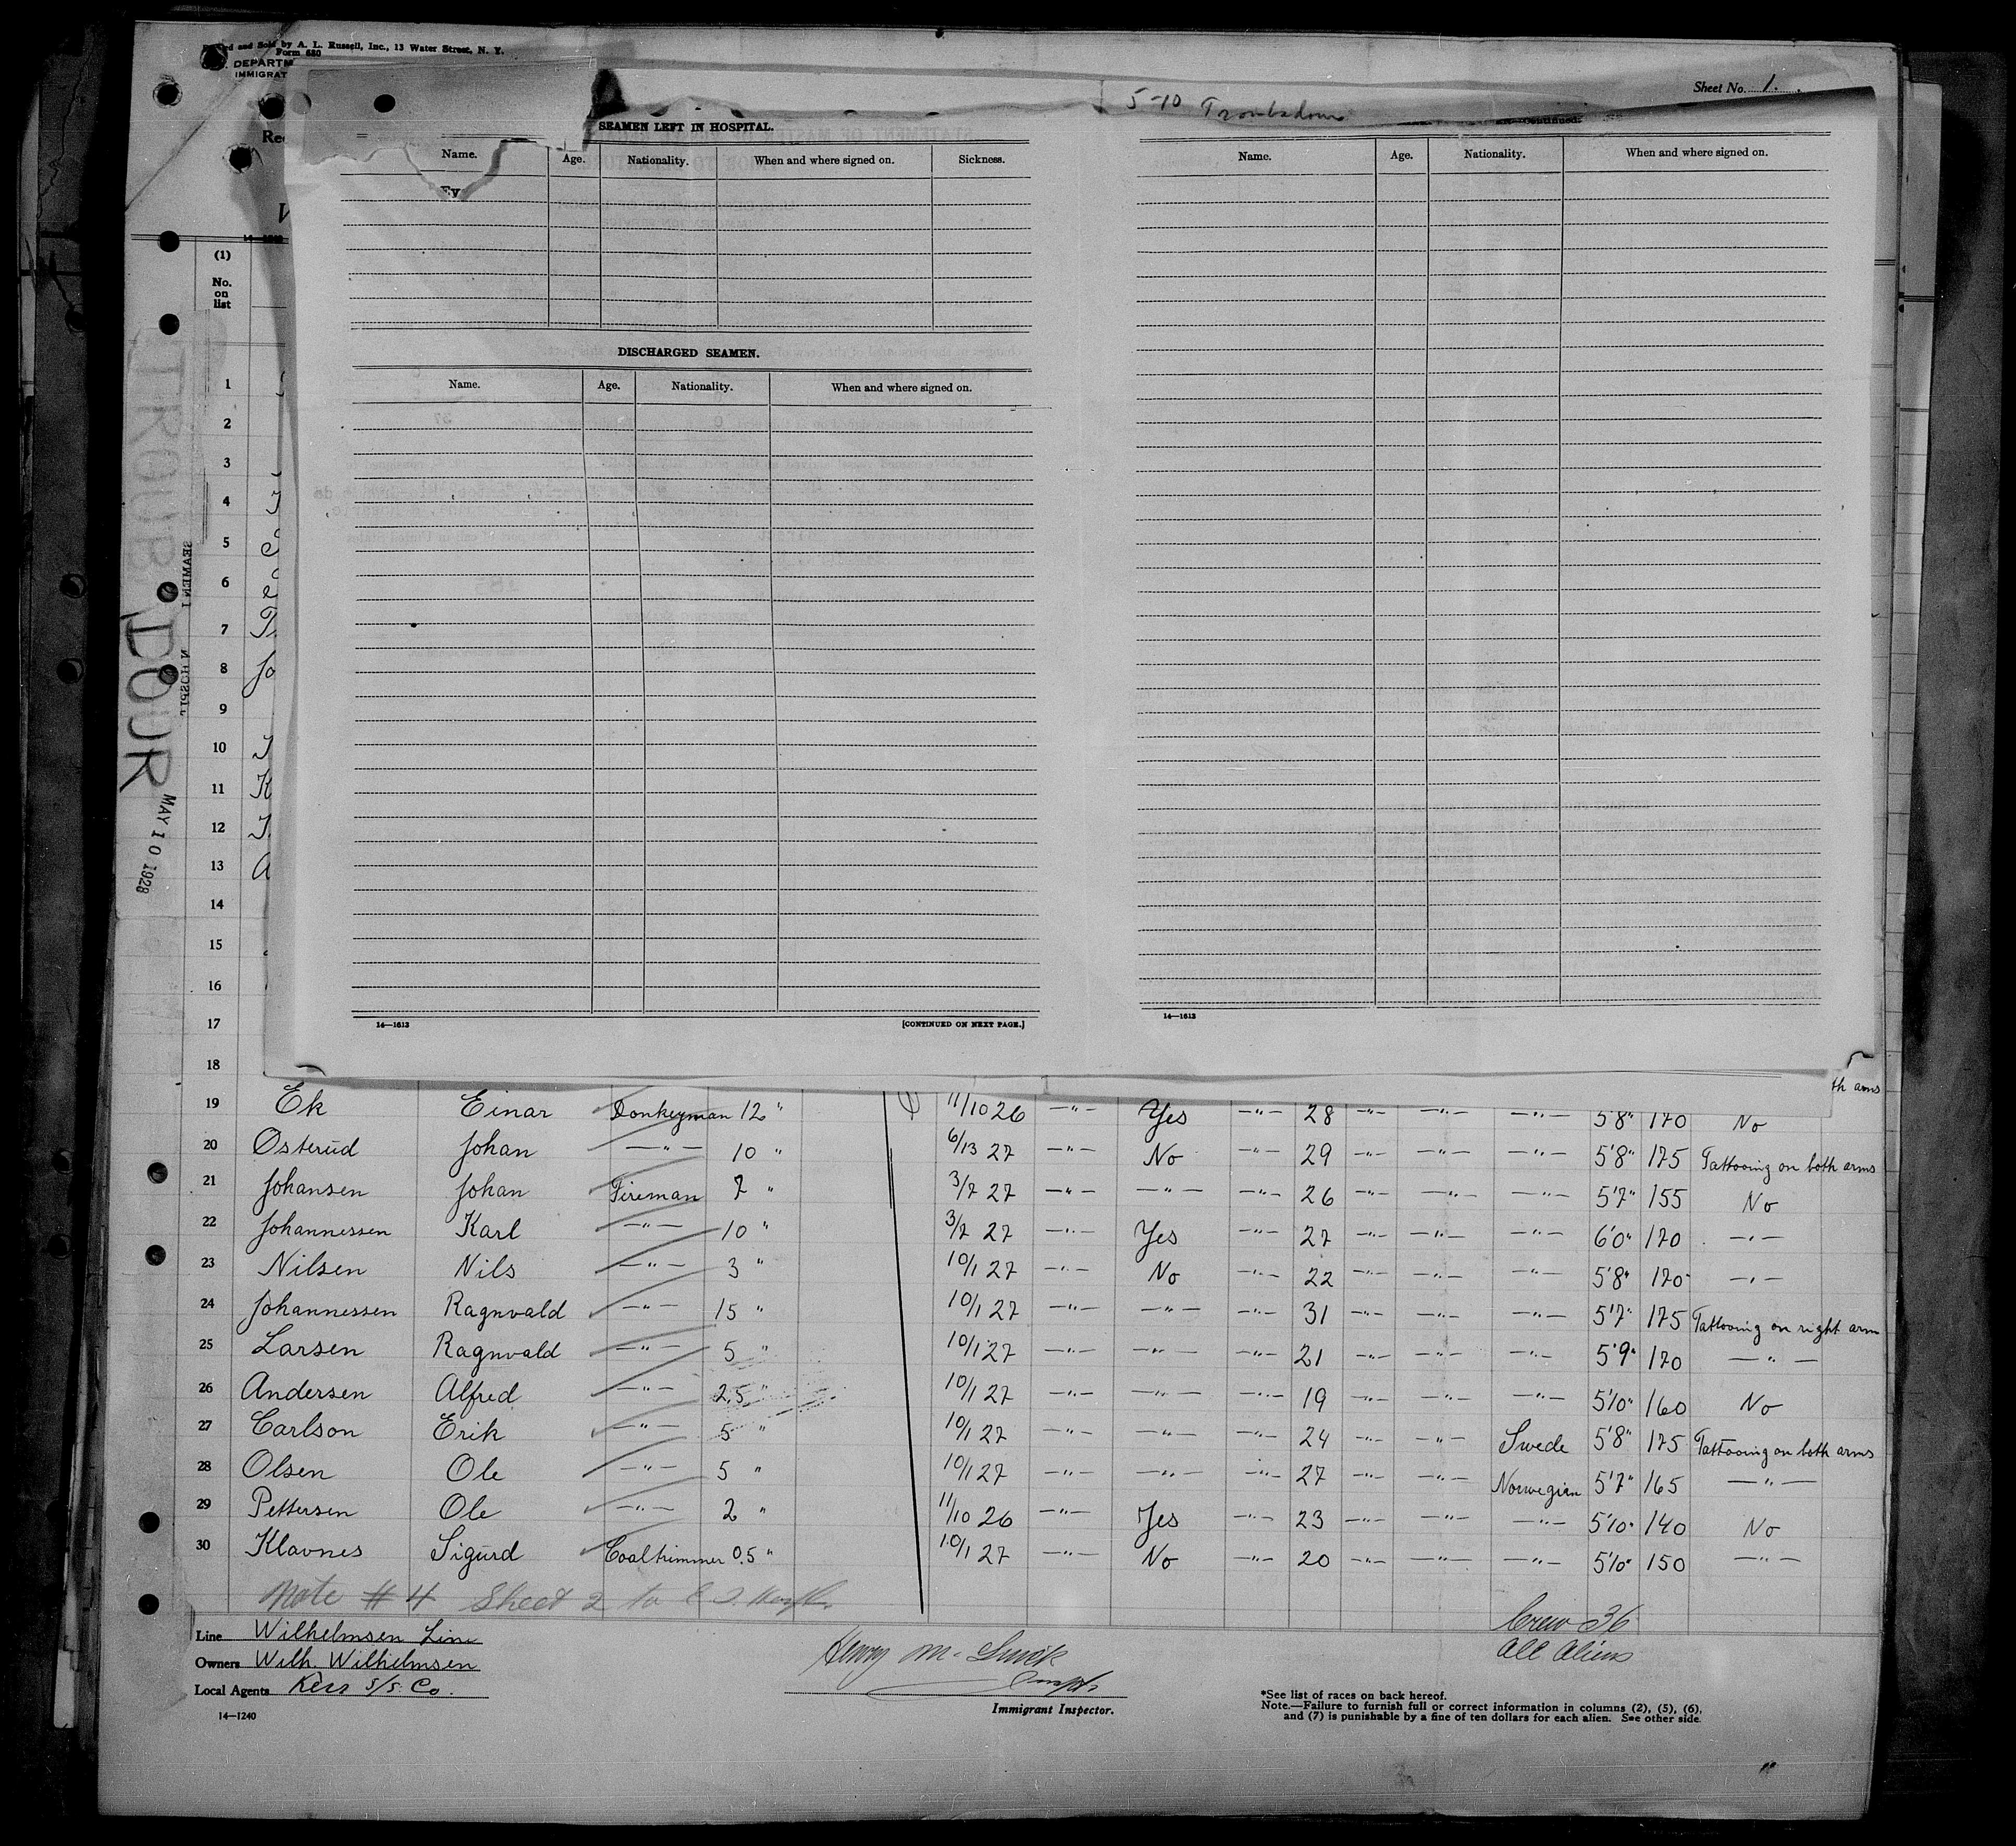 Printed and Sold by A. L. Russell, Inc., 13 Water Street, N. Y.
Form 680
DEPARTM
IMMIGRAT
Sheet No. 1.
5-10 Troubadour
SEAMEN LEFT IN HOSPITAL.
Continued.
Name. Age. Nationality. When and where signed on. Sickness.
Name. Age. Nationality. When and where signed on.
Ev
DISCHARGED SEAMEN.
Name. Age. Nationality. When and where signed on.
14—1613 [CONTINUED ON NEXT PAGE.]
14—1613
TROUBADOUR
MAY 10 1928
(1)
No.
on
list
1
2
3
4
5
6
7
8
9
10
11
12
13
14
15
16
17
18
th arms
19 Ek Einar Donkeyman 12 " 11/10 26 —"— Yes —"— 28 —"— —"— —"— 5'8" 170 No
20 Osterud Johan —"— 10 " 6/13 27 —"— No —"— 29 —"— —"— —"— 5'8" 175 Tattooing on both arms
21 Johansen Johan Fireman 7 " 3/7 27 —"— —"— —"— 26 —"— —"— —"— 5'7" 155 No
22 Johannessen Karl —"— 10 " 3/7 27 —"— Yes —"— 27 —"— —"— —"— 6'0" 170 —"—
23 Nilsen Nils —"— 3 " 10/1 27 —"— No —"— 22 —"— —"— —"— 5'8" 170 —"—
24 Johannessen Ragnvald —"— 15 " 10/1 27 —"— —"— —"— 31 —"— —"— —"— 5'7" 175 Tattooing on right arm
25 Larsen Ragnvald —"— 5 " 10/1 27 —"— —"— —"— 21 —"— —"— —"— 5'9" 170 —"—
26 Andersen Alfred —"— 2,5 " 10/1 27 —"— —"— —"— 19 —"— —"— —"— 5'10" 160 No
27 Carlson Erik —"— 5 " 10/1 27 —"— —"— —"— 24 —"— —"— Swede 5'8" 175 Tattooing on both arms
28 Olsen Ole —"— 5 " 10/1 27 —"— —"— —"— 27 —"— —"— Norwegian 5'7" 165 —"—
29 Pettersen Ole —"— 2 " 11/10 26 —"— Yes —"— 23 —"— —"— —"— 5'10" 140 No
30 Klavnes Sigurd Coaltrimmer 0.5 " 10/1 27 —"— No —"— 20 —"— —"— —"— 5'10" 150 —"—
Note # 4 Sheet 2 to
Crew 36
All Aliens
Line Wilhelmsen Line
Owners Wilh. Wilhelmsen
Local Agents Kerr S/S. Co.
14—1240
Henry M.
Immigrant Inspector.
*See list of races on back hereof.
Note.—Failure to furnish full or correct information in columns (2), (5), (6),
and (7) is punishable by a fine of ten dollars for each alien. See other side.